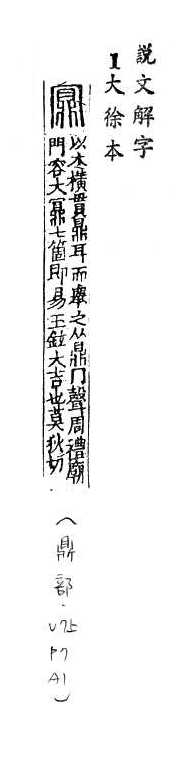 説文解字
1大徐本
鼏
以木橫貫鼎耳而舉之从鼎冂聲周禮廟
門容大鼏七箇即易玉鉉大吉也莫狄切
(鼎部·V7上
P7
A1)